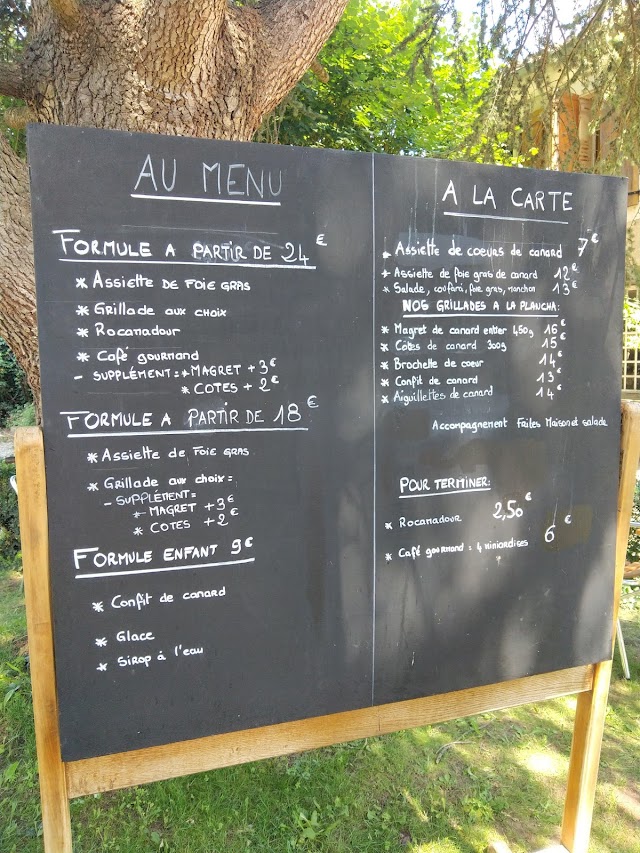 AU MENU
FORMULE A PARTIR DE 24 €
* ASSIETTE DE FOIE GRAS
* Grillade aux choix
* Rocanadour
* Café gourmand
- SUPPLÉMENT = * MAGRET + 3€
* COTES + 2€
FORMULE A PARTIR DE 18 €
* Assiette DE FOIE GRAS
* Grillade aux choix =
- SUPPLÉMENT =
* - MAGRET + 3€
* COTES + 2€
FORMULE ENFANT 9€
* Confit de canard
* Glace
* Sirop à l'eau
A LA CARTE
* Assiette de coeurs de canard 7€
* Assiette de foie gras de canard 12€
* Salade, foie gras, manchon 13€
NOS GRILLADES A LA PLANCHA:
* Magret de canard entier 450g 16€
* Côtes de canard 300g 15€
* Brochette de coeur 14€
* Confit de canard 13€
* Aiguillettes de canard 14€
Accompagnement Faites Maison et salade
POUR TERMINER:
* Rocanadour 2,50€
* Café gourmand = 4 miniardises 6€